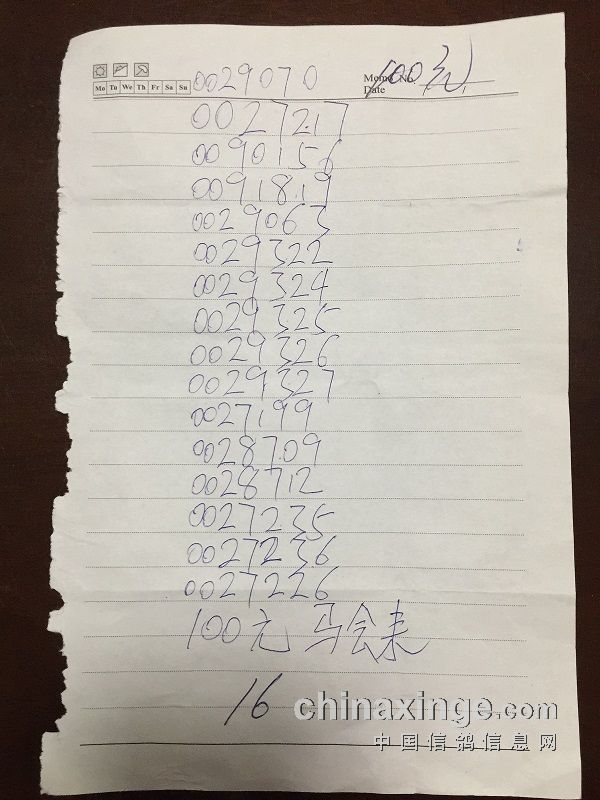 Mo Tu We Th Fr Sa Su
Memo No. 100元
Date
0029070
0027217
0090156
0091819
0029063
0029322
0029324
0029325
0029326
0029327
0027199
0028709
0028712
0027235
0027236
0027226
100元 马会来
16
chinaxinge.com
中国信鸽信息网